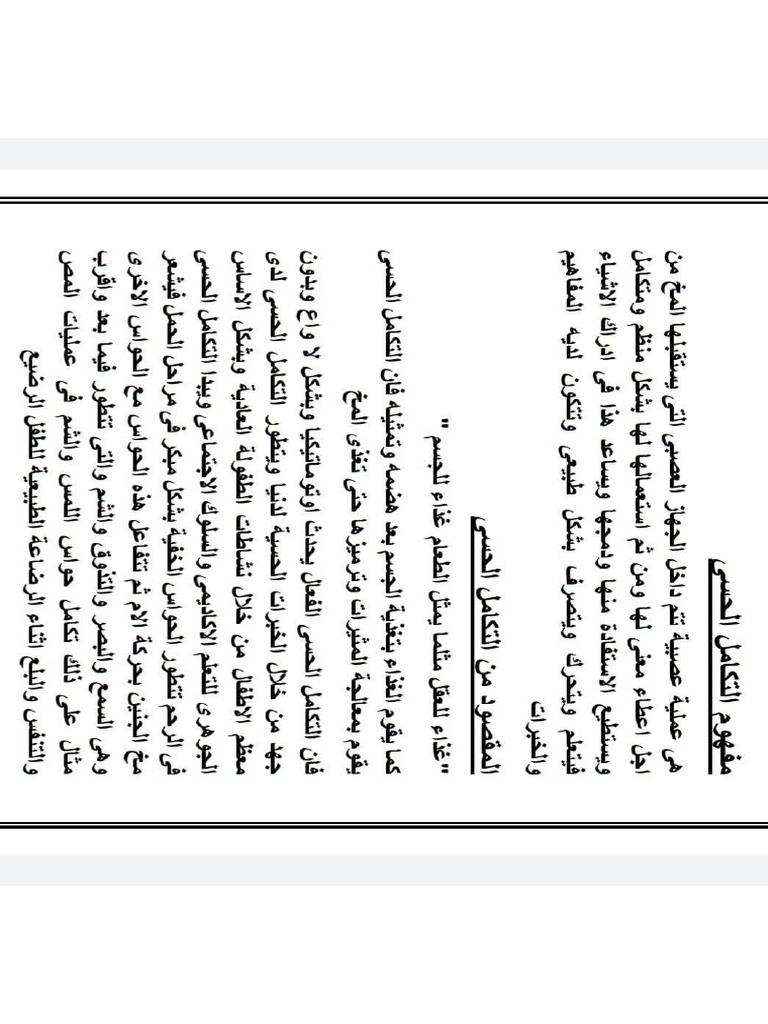 مفهوم التكامل الحسى
هى عملية عصبية تتم داخل الجهاز العصبى التى يستقبلها المخ من
اجل اعطاء معنى لها ومن ثم استعمالها لها بشكل منظم ومتكامل
ويستطيع الاستفادة منها ودمجها ويساعد هذا فى ادراك الاشياء
فيتعلم ويتحرك ويتصرف بشكل طبيعى وتتكون لديه المفاهيم
والخبرات
المقصود من التكامل الحسى
"غذاء للعقل مثلما يمثل الطعام غذاء للجسم "
كما يقوم الغذاء بتغذية الجسم بعد هضمه وتمثيله فان التكامل الحسى
يقوم بمعالجة المثيرات وترميزها حتى تغذى المخ
فان التكامل الحسى الفعال يحدث اوتوماتيكيا وبشكل لا واع وبدون
جهد من خلال الخبرات الحسية لدنيا ويتطور التكامل الحسى لدى
معظم الاطفال من خلال نشاطات الطفولة العادية وبشكل الاساس
الجوهرى للتعلم الاكاديمى والسلوك الاجتماعى ويبدا التكامل الحسى
فى الرحم تتطور الحواس الخفية بشكل مبكر فى مراحل الحمل فيشعر
مخ الجنين بحركة الام ثم تتفاعل هذه الحواس مع الحواس الاخرى
وهى السمع والبصر والتذوق والشم والتى تتطور فيما بعد واقرب
مثال على ذلك تكامل حواس اللمس والشم فى عمليات المص
والتنفس والبلع اثناء الرضاعة الطبيعية للطفل الرضيع